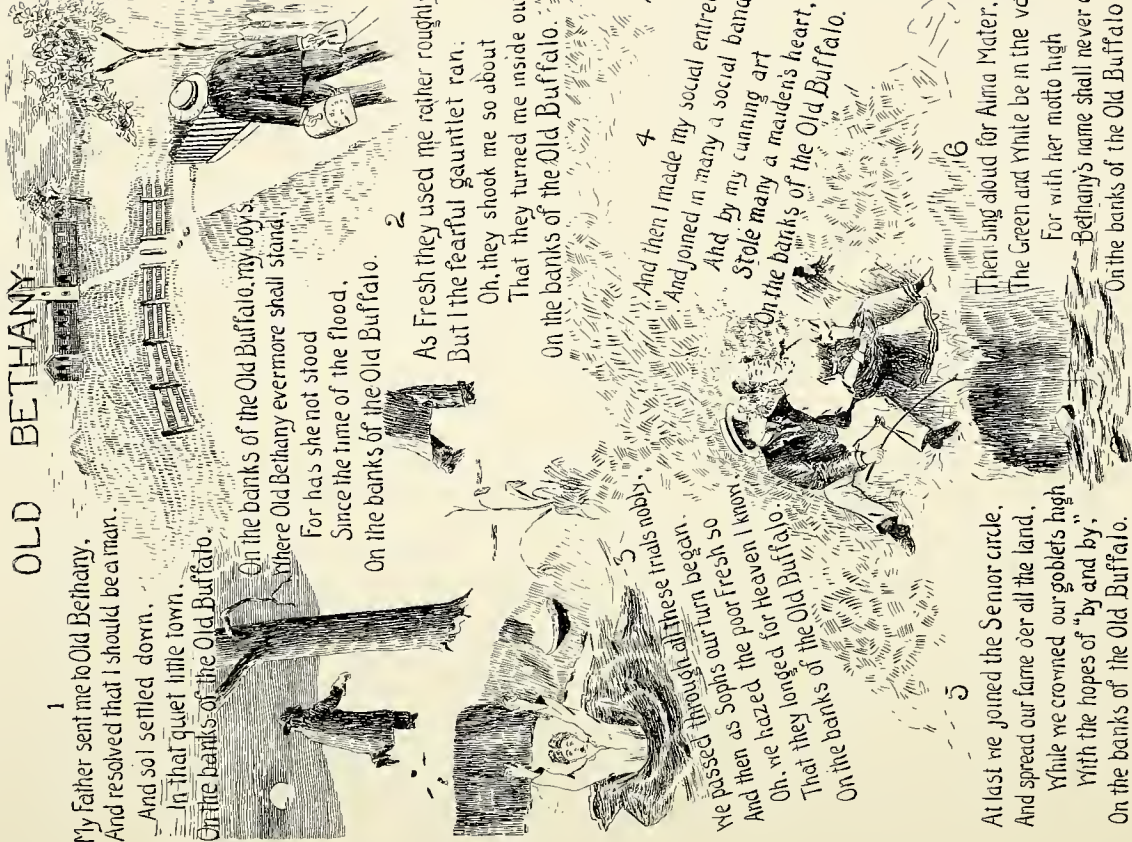 OLD BETHANY.
1
My Father sent me to Old Bethany,
And resolved that I should be a man.
And so I settled down,
In that quiet little town,
On the banks of the Old Buffalo.
On the banks of the Old Buffalo, my boys,
Where Old Bethany evermore shall stand,
For has she not stood
Since the time of the flood,
On the banks of the Old Buffalo.
2
As Fresh they used me rather roughly
But I the fearful gauntlet ran.
Oh, they shook me so about
That they turned me inside ou
On the banks of the Old Buffalo.
3
We passed through all these trials nobly,
And then as Sophs our turn began.
Oh, we hazed the poor Fresh so
That they longed for Heaven I know
On the banks of the Old Buffalo.
4
And then I made my social entree
And joined in many a social band
And by my cunning art
Stole many a maiden's heart,
On the banks of the Old Buffalo.
5
At last we joined the Senior circle,
And spread our fame o'er all the land,
While we crowned our goblets high
With the hopes of "by and by,"
On the banks of the Old Buffalo.
6
Then sing aloud for Alma Mater,
The Green and White be in the va
For with her motto high
Bethany's name shall never
On the banks of the Old Buffalo